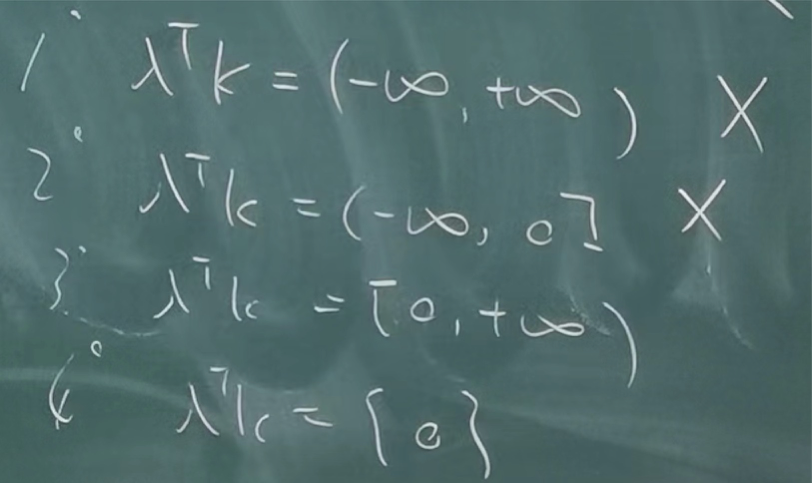 1° λᵀk = (-∞, +∞) X
2° λᵀk = (-∞, 0] X
3° λᵀk = [0, +∞)
4° λᵀk = {0}